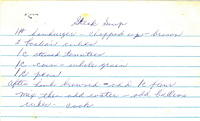 Steak Soup
1# hamburger - chopped up - brown
2 boulion cubes
1 C stewed tomatoes
1 C corn - whole grain
1 C peas
After hamb browned - add ½ C flour
mix then add water - add bullion
cubes - cook